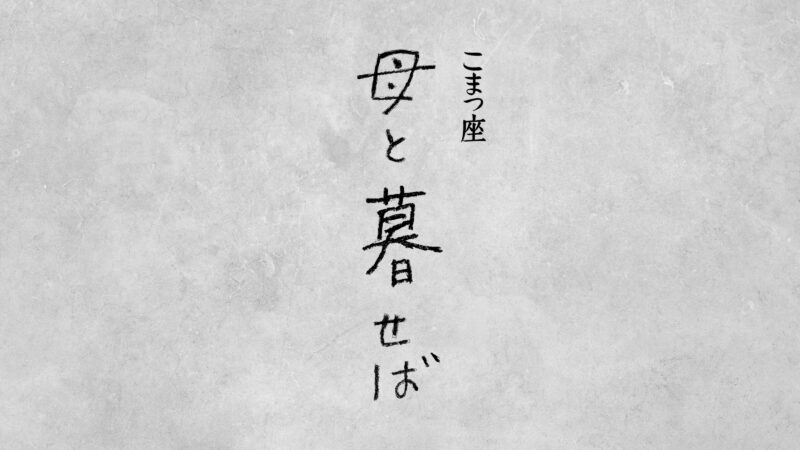 こまつ座
母と暮せば